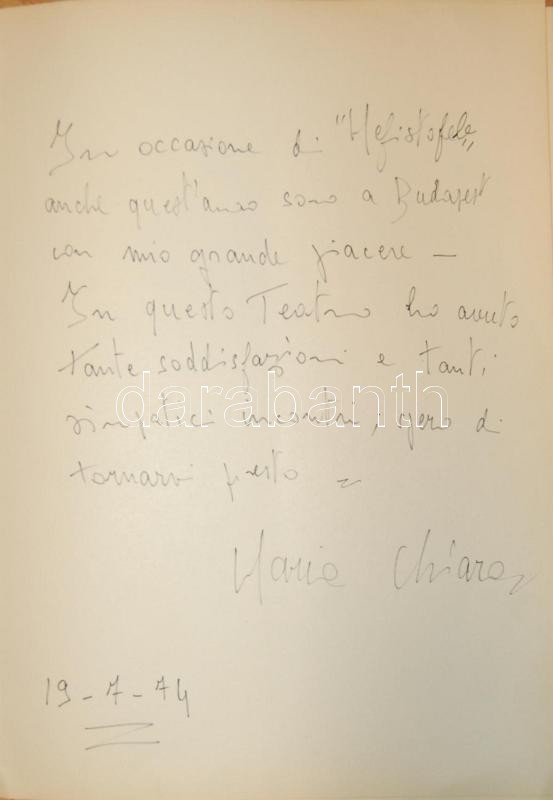 In occasione di "Mefistofele„
anche quest'anno sono a Budapest
con mio grande piacere —
In questo Teatro ho avuto
tante soddisfazioni e tanti
darabanth
simpatici incontri; spero di
tornarvi presto ~
Maria Chiara
19-7-74